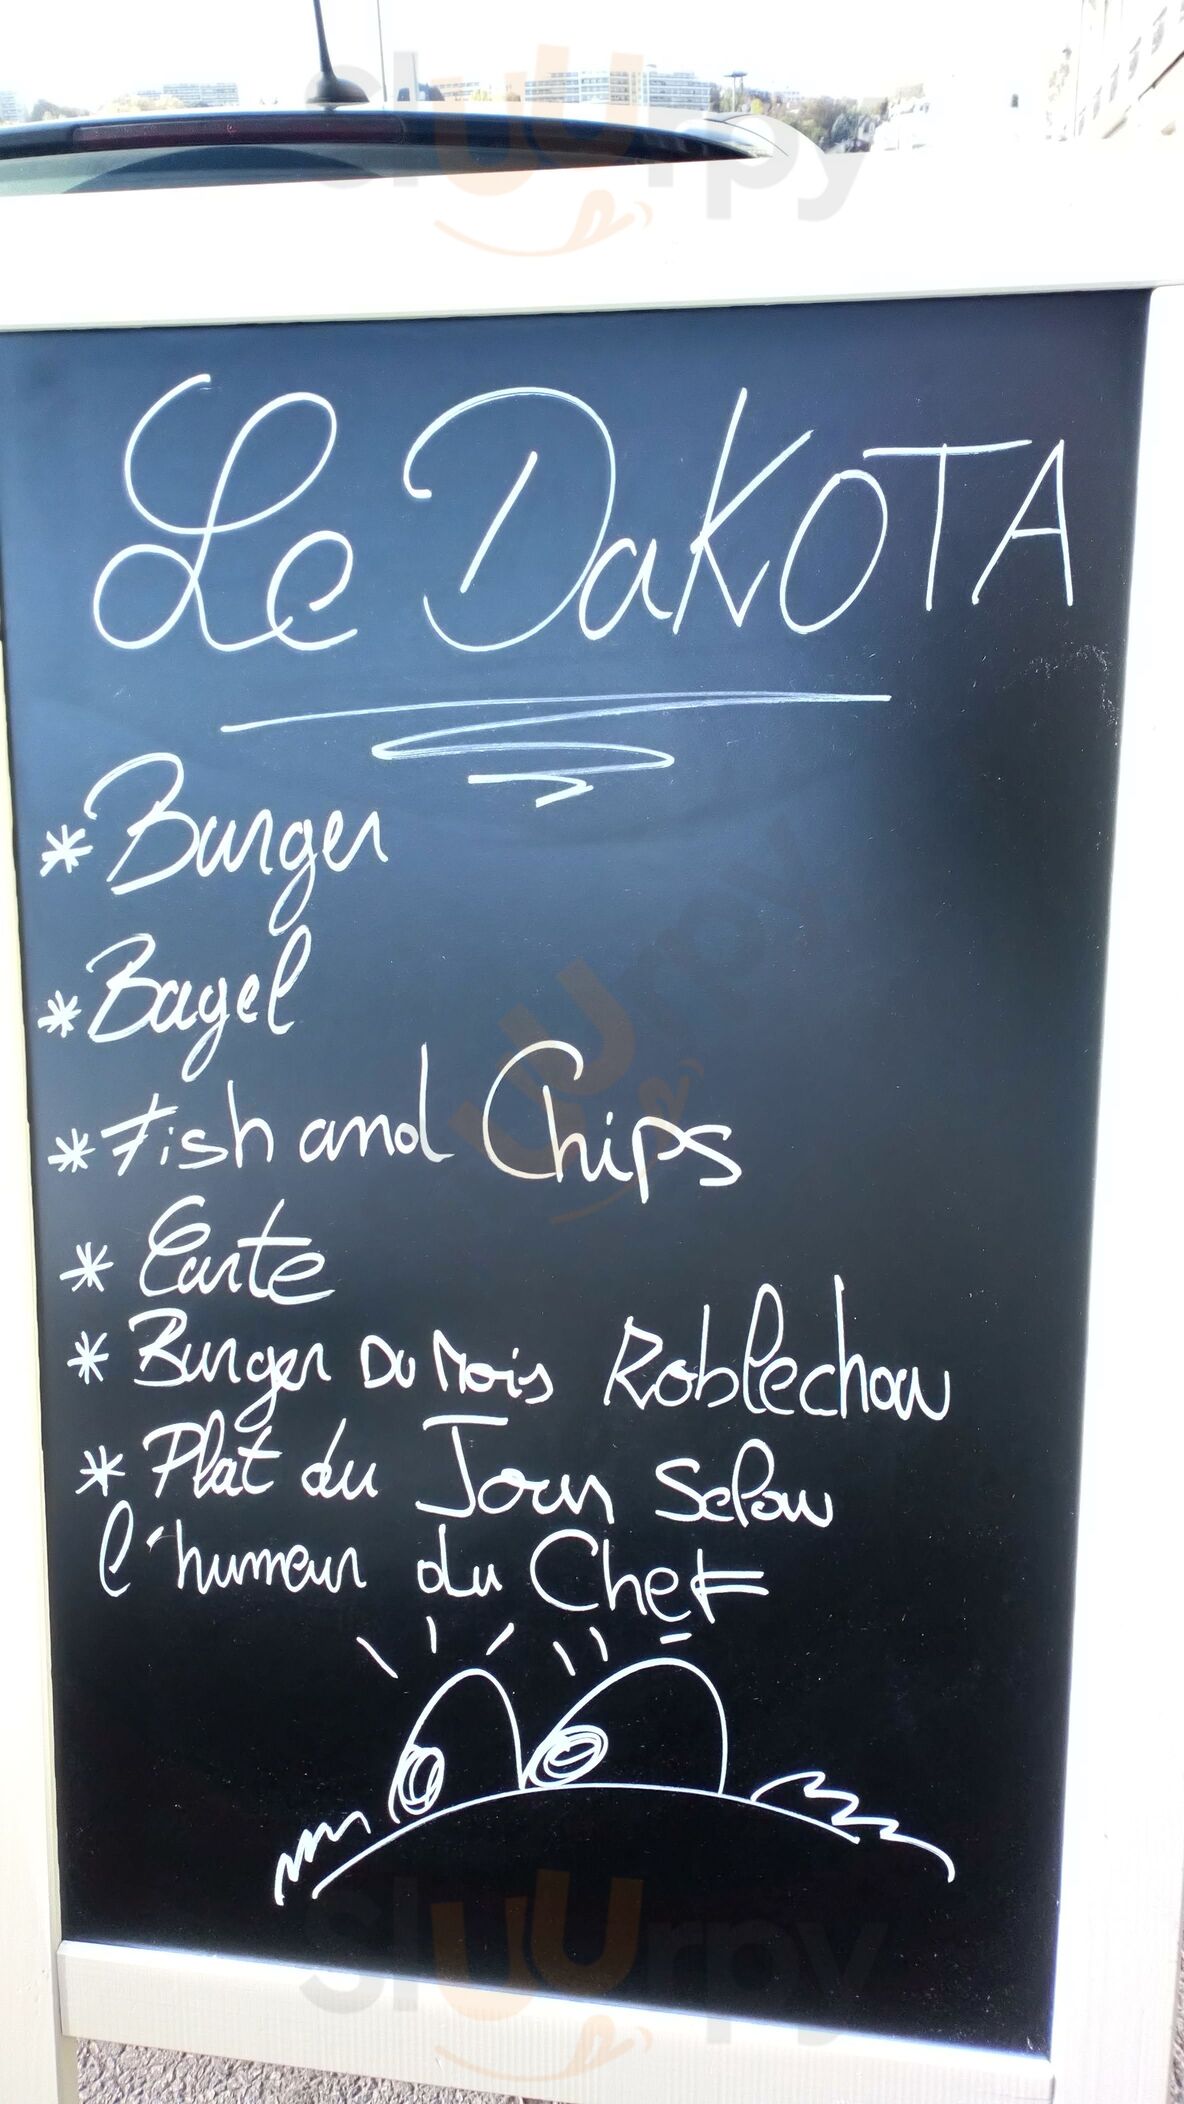 Sluurpy
Le DaKOTA
* Burger
* Bagel
Sluurpy
* Fish and Chips
* Carte
* Burger Du Mois Roblechon
* Plat du Jour Selon
l'humeur du Chef
Sluurpy